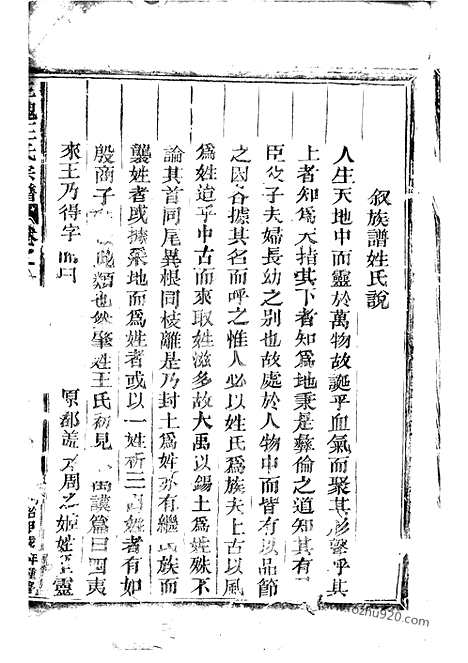 叙族譜姓氏說
人生天地中而靈於萬物故誕乎血氣而聚其形聲乎其
上者知為天指其下者知為地秉是彝倫之道知其有
臣父子夫婦長幼之別也故處於人物中而皆有以品節
之因各據其名而呼之惟人必以姓氏為族夫上古以風
為姓道乎中古而來取姓滋多故大禹以錫土為姓殊不
論其首同尾異根同枝離是乃封土為姓亦有繼氏族而
襲姓者或據采地而為姓者或以一姓析三姓者有如
殷商子類也然肇姓王氏初見謨篇曰四夷
來王乃得字原都周之姬姓靈
王氏宗譜
卷之一
rozhu920.com